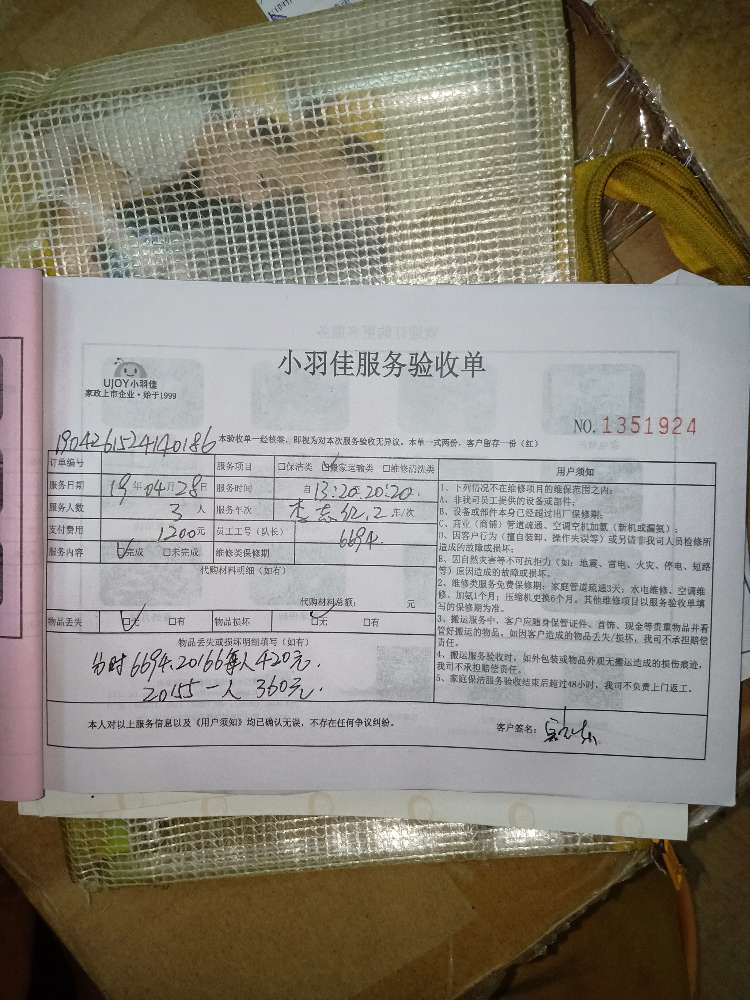 小羽佳服务验收单
UJOY小羽佳
家政上市企业·始于1999
NO.1351924
1904261524140186
本验收单一经核签,即视为对本次服务验收无异议。本单一式两份,客户留存一份(红)
订单编号 服务项目 □保洁类 ☑搬家运输类 □维修清洗类
服务日期 19年04月28日 服务时间 自13:20:20:20.
服务人数 3人 服务车次 2车/次
支付费用 1200元 员工工号(队长) 6694
服务内容 ☑完成 □未完成 维修类保修期
代购材料明细(如有)
代购材料总额: 元
物品丢失 ☑无 □有 物品损坏 ☑无 □有
物品丢失或损坏明细填写(如有)
分时6694.20166每人420元.
20155一人360元.
用户须知
1、下列情况不在维修项目的维保范围之内:
A、非我司员工提供的设备或部件;
B、设备或部件本身已经超过出厂保修期;
C、商业(商铺)管道疏通、空调空机加氨(新机或漏氨);
D、因客户行为(擅自装卸、操作失误等)或另请非我司人员检修所
造成的故障或损坏;
E、因自然灾害等不可抗力(如:地震、雷电、火灾、停电、短路
等)原因造成的故障或损坏。
2、维修类服务免费保修期:家庭管道疏通3天;水电维修、空调维
修、加氨1个月;压缩机更换6个月。其他维修项目以服务验收单填
写的保修期为准。
3、搬运服务中,客户应随身保管证件、首饰、现金等贵重物品并看
管好搬运的物品,如因客户造成的物品丢失/损坏,我司不承担赔偿
责任。
4、搬运服务验收时,如外包装或物品外观无搬运造成的损伤痕迹,
我司不承担赔偿责任。
5、家庭保洁服务验收结束后超过48小时,我司不负责上门返工。
本人对以上服务信息以及《用户须知》均已确认无误,不存在任何争议纠纷。 客户签名: